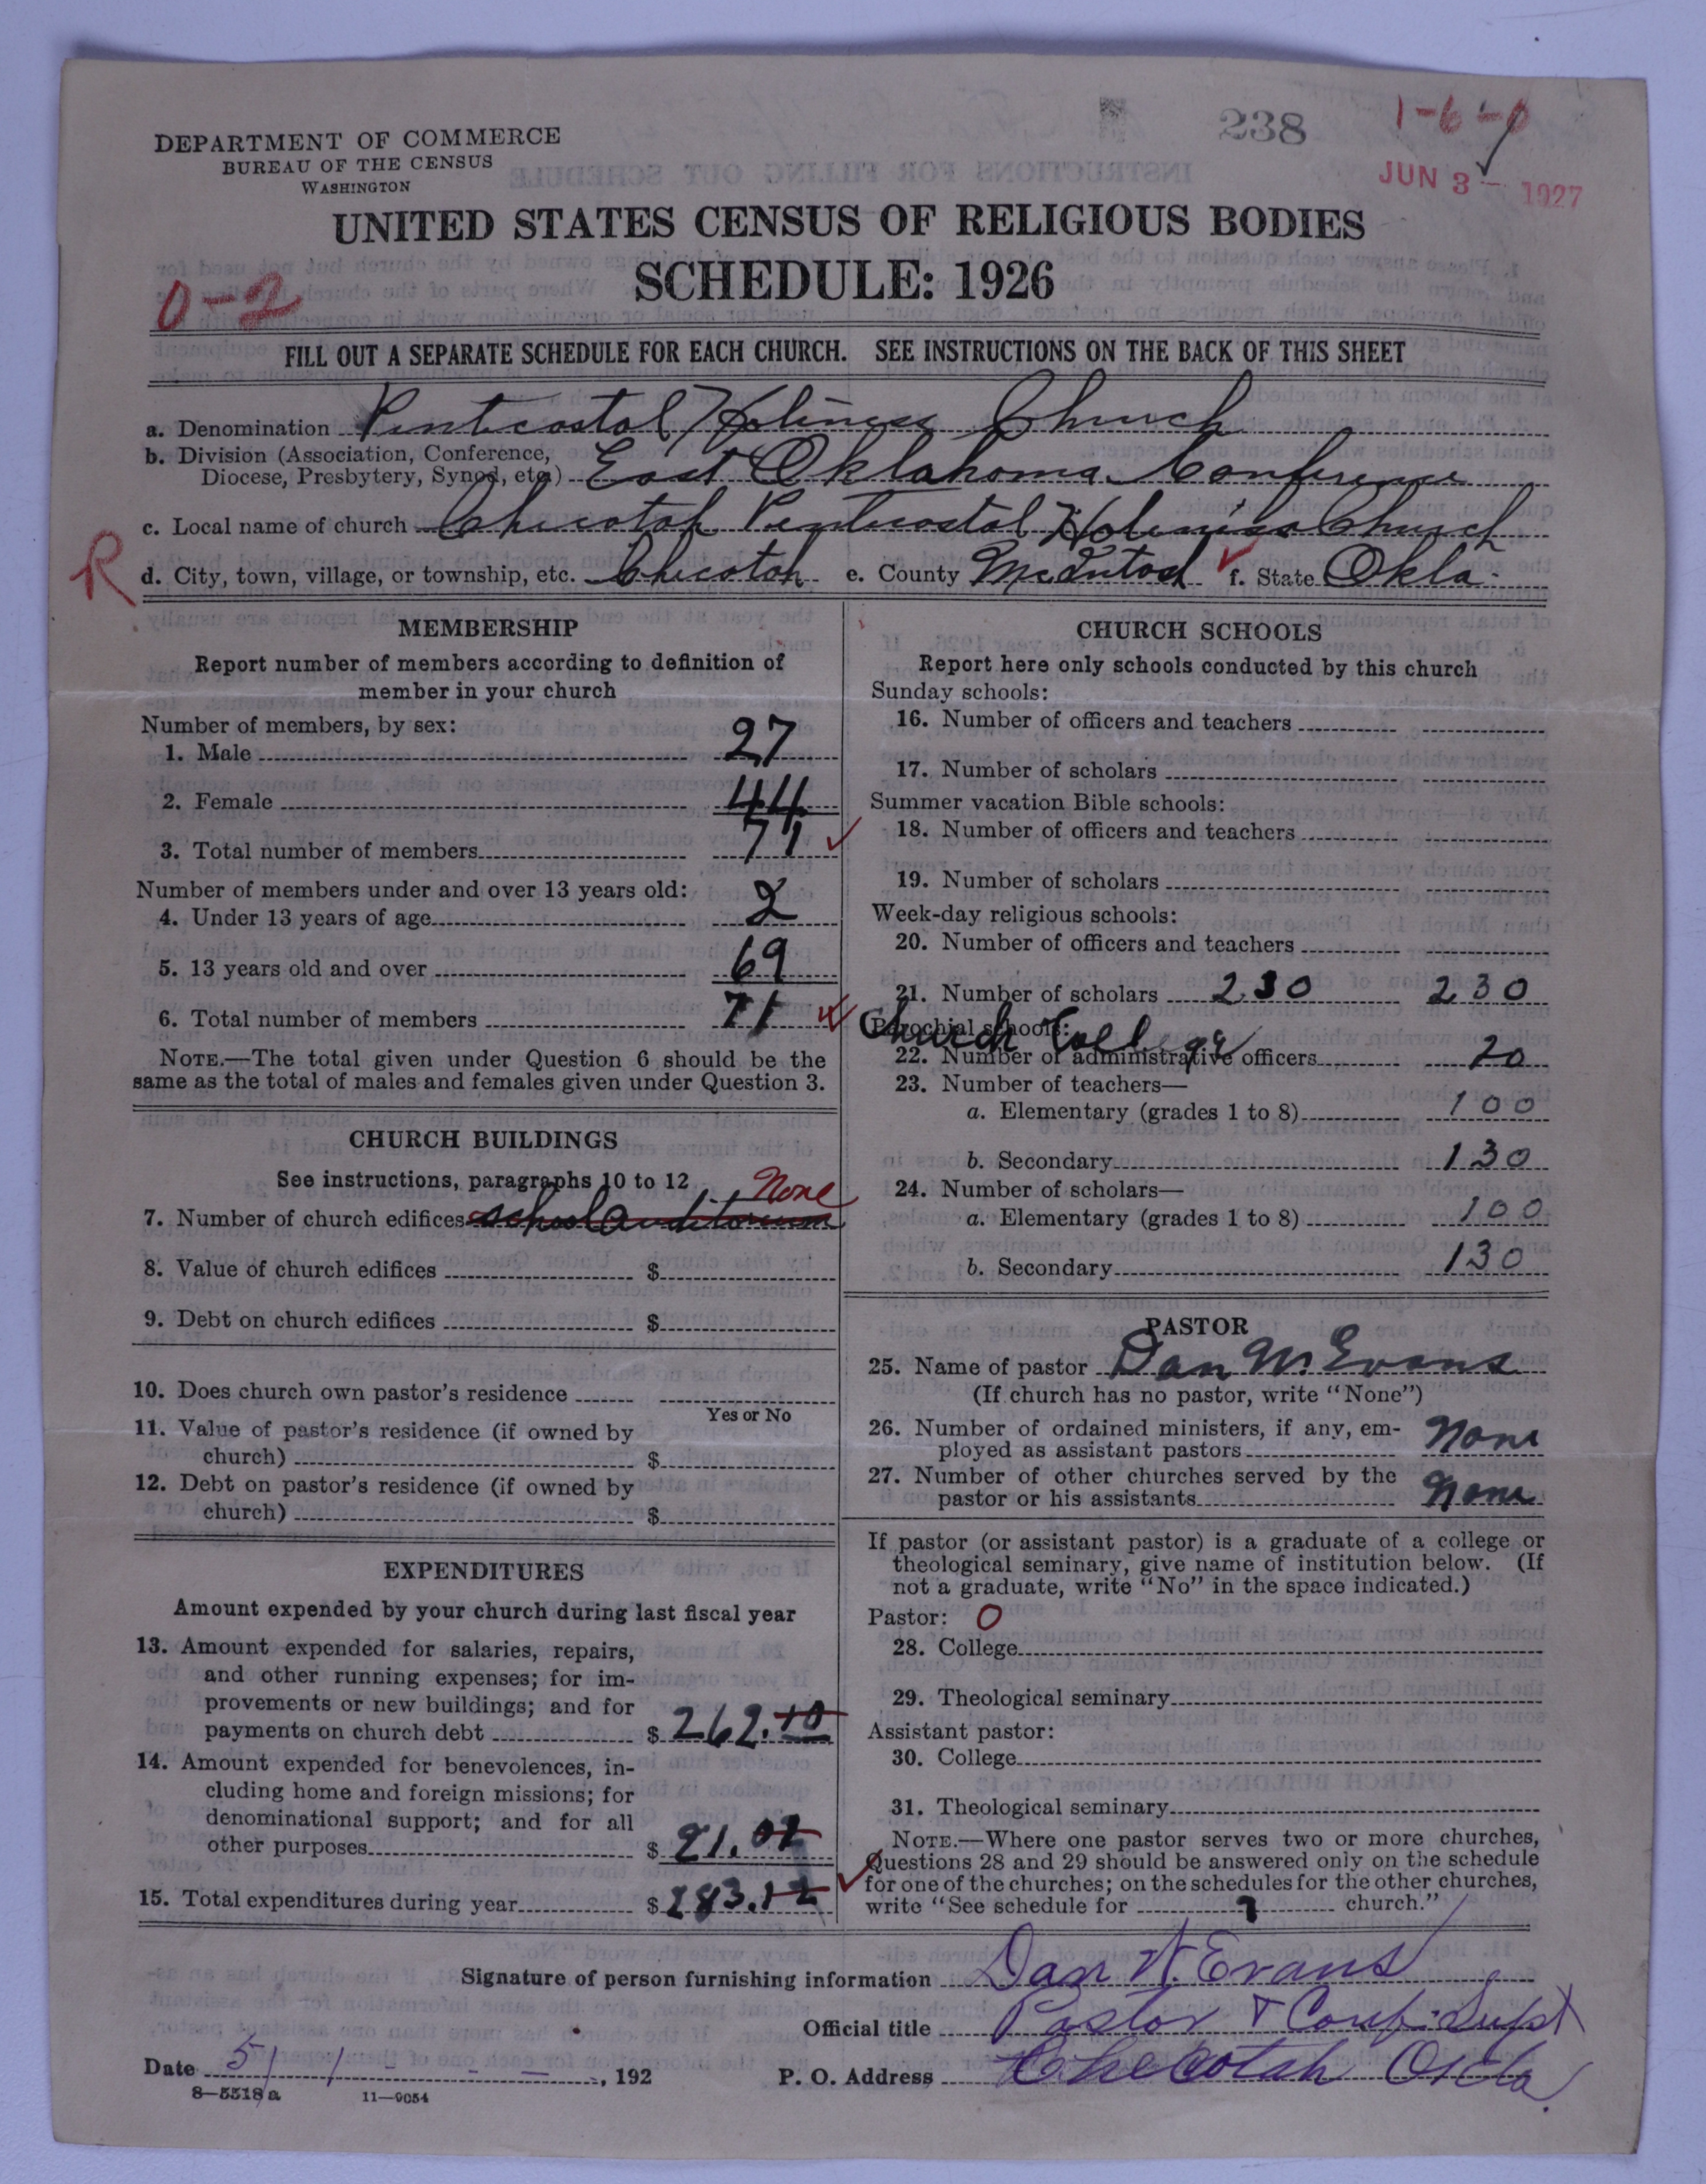 238
1-6-0
JUN 3 - 1927
DEPARTMENT OF COMMERCE
BUREAU OF THE CENSUS
WASHINGTON
UNITED STATES CENSUS OF RELIGIOUS BODIES
SCHEDULE: 1926
0-2
FILL OUT A SEPARATE SCHEDULE FOR EACH CHURCH. SEE INSTRUCTIONS ON THE BACK OF THIS SHEET
a. Denomination Pentecostal Holiness Church
b. Division (Association, Conference,
Diocese, Presbytery, Synod, etc.) East Oklahoma Conference
c. Local name of church Checotah Pentecostal Holiness Church
R
d. City, town, village, or township, etc. Checotah e. County McIntosh f. State Okla.
MEMBERSHIP
Report number of members according to definition of
member in your church
Number of members, by sex:
1. Male 27
2. Female 44
3. Total number of members 71
Number of members under and over 13 years old:
4. Under 13 years of age 2
5. 13 years old and over 69
6. Total number of members 71
NOTE.—The total given under Question 6 should be the
same as the total of males and females given under Question 3.
CHURCH BUILDINGS
See instructions, paragraphs 10 to 12 None
7. Number of church edifices school auditorium
8. Value of church edifices $
9. Debt on church edifices $
10. Does church own pastor's residence
Yes or No
11. Value of pastor's residence (if owned by
church) $
12. Debt on pastor's residence (if owned by
church) $
EXPENDITURES
Amount expended by your church during last fiscal year
13. Amount expended for salaries, repairs,
and other running expenses; for im-
provements or new buildings; and for
payments on church debt $ 262.10
14. Amount expended for benevolences, in-
cluding home and foreign missions; for
denominational support; and for all
other purposes $ 21.02
15. Total expenditures during year $ 283.12
CHURCH SCHOOLS
Report here only schools conducted by this church
Sunday schools:
16. Number of officers and teachers
17. Number of scholars
Summer vacation Bible schools:
18. Number of officers and teachers
19. Number of scholars
Week-day religious schools:
20. Number of officers and teachers
21. Number of scholars 230 230
Parochial schools: Church College
22. Number of administrative officers 20
23. Number of teachers—
a. Elementary (grades 1 to 8) 100
b. Secondary 130
24. Number of scholars—
a. Elementary (grades 1 to 8) 100
b. Secondary 130
PASTOR
25. Name of pastor Dan W. Evans
(If church has no pastor, write "None")
26. Number of ordained ministers, if any, em-
ployed as assistant pastors None
27. Number of other churches served by the
pastor or his assistants None
If pastor (or assistant pastor) is a graduate of a college or
theological seminary, give name of institution below. (If
not a graduate, write "No" in the space indicated.)
Pastor: 0
28. College
29. Theological seminary
Assistant pastor:
30. College
31. Theological seminary
NOTE.—Where one pastor serves two or more churches,
Questions 28 and 29 should be answered only on the schedule
for one of the churches; on the schedules for the other churches,
write "See schedule for ? church."
Signature of person furnishing information Dan W. Evans
Official title Pastor & Conf. Supt
Date 5/1/ - - -, 192 P. O. Address Checotah Okla.
8-5518a 11-9054